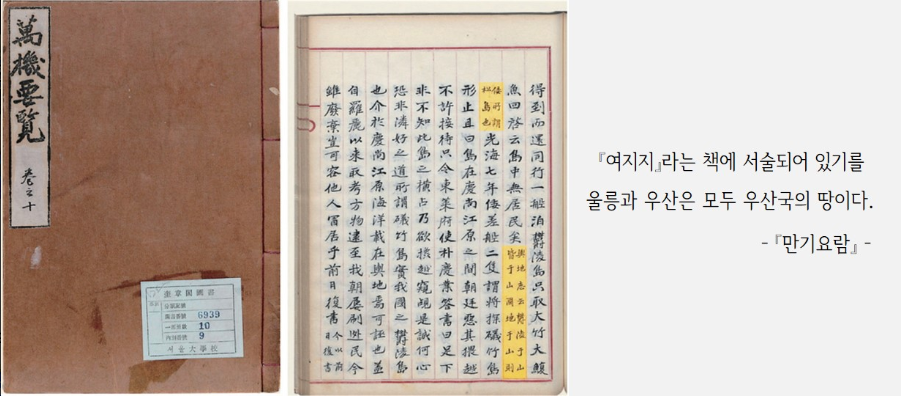 萬機要覽
卷之十
奎章閣圖書
圖書番號 6939
一部冊數 10
9
서울大學校
得到而還同行一船泊欝陵島只取大竹大鰒
魚回啓云島中無居民矣輿地志云欝陵于山皆于山國地于山則
倭所謂松島也光海七年倭差船二隻謂將探礒竹島
形止且曰島在慶尚江原之間朝廷惡其猥越
不許接待只令東萊府使朴慶業答書曰足下
非不知此島之橫占乃欲攙越窺覘是誠何心
恐非隣好之道所謂礒竹島實我國之欝陵島
也介於慶尚江原海洋載在輿地焉可誣也盖
自羅麗以來取考方物逮至我朝屢刷逃民今
雖廢棄豈可容他人冒居乎前日復書
『여지지』라는 책에 서술되어 있기를
울릉과 우산은 모두 우산국의 땅이다.
-『만기요람』-